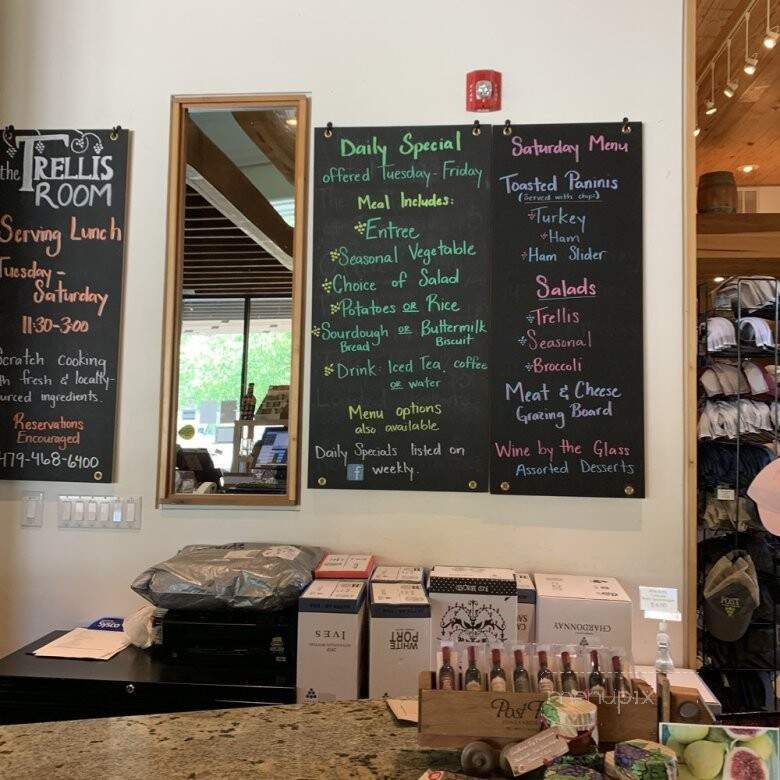 the TRELLIS
ROOM
Serving Lunch
Tuesday -
Saturday
11:30-3:00
Scratch cooking
fresh & locally-
ingredients.
Reservations
Encouraged
479-468-6400
Daily Special
offered Tuesday - Friday
Meal Includes:
Entree
Seasonal Vegetable
Choice of Salad
Potatoes OR Rice
Sourdough OR Buttermilk
Bread Biscuit
Drink: Iced Tea, coffee
OR water
Menu options
also available
Daily Specials listed on
f weekly.
Saturday Menu
Toasted Paninis
(served with chips)
Turkey
Ham
Ham Slider
Salads
Trellis
Seasonal
Broccoli
Meat & Cheese
Grazing Board
Wine by the Glass
Assorted Desserts
IVES
WHITE
PORT
CHARDONNAY
Post
POST
menupix